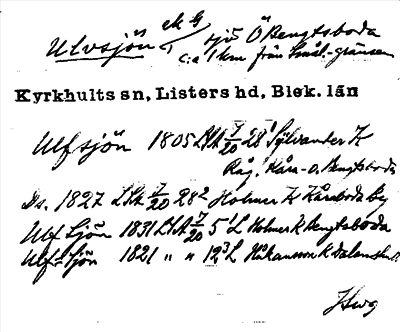 Ulvsjön ek G sjö Ö Bengtsboda
c:a 1 km från Smål.-gränsen
Kyrkhults sn, Listers hd, Blek. län
Ulfsjön 1805 LSA 7/20 28¹ Sylvander K
Råg. Kåra- o. Bengtsboda
Ds. 1827 LSA 7/20 28² Holmer K Kåraboda by
Ulf Sjön 1831 LSA 7/20 5¹ L Holmer K Bengtsboda
Ulf Sjön 1821 " " 12³ L Håkansson K